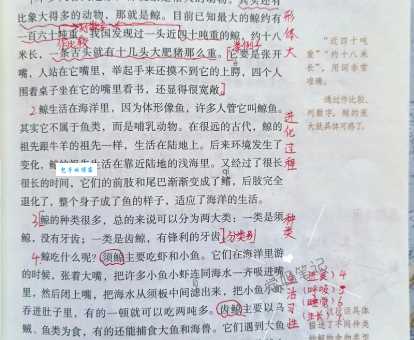 比象大得多的动物,那就是鲸。目前已知最大的鲸约有
一百六十吨重,我国发现过一头近四十吨重的鲸,约十八
米长,一条舌头就有十几头大肥猪那么重。它要是张开
嘴,人站在它嘴里,举起手来还摸不到它的上腭,四个人
围着桌子坐在它的嘴里看书,还显得很宽敞
形体大
“近四十吨
重”“约十八米
长”,用词非常
准确。
2 鲸生活在海洋里,因为体形像鱼,许多人管它叫鲸鱼。
其实它不属于鱼类,而是哺乳动物。在很远的古代,鲸的
祖先跟牛羊的祖先一样,生活在陆地上。后来环境发生了
变化,鲸的祖先生活在靠近陆地的浅海里。又经过了很长
很长的时间,它们的前肢和尾巴渐渐变成了鳍,后肢完全
退化了,整个身子成了鱼的样子,适应了海洋的生活。
进化过程
3 鲸的种类很多,总的来说可以分为两大类:一类是须
鲸,没有牙齿;一类是齿鲸,有锋利的牙齿。分类别
种类
4 鲸吃什么呢?须鲸主要吃虾和小鱼。它们在海洋里游
的时候,张着大嘴,把许多小鱼小虾连同海水一齐吸进嘴
里,然后闭上嘴,把海水从须板中间滤出来,把小鱼小虾
吞进肚子里,有的一顿就可以吃两吨多。齿鲸主要以乌
鲗、鱼类为食,有的还能捕食大鱼和海兽。它们遇到大鱼
生活习性